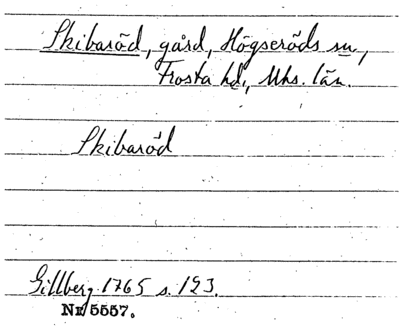 Skibaröd, gård, Högseröds sn,
Frosta hd., Mhs. län.
Skibaröd
Gillberg 1765 s. 123.
Nr 5557.